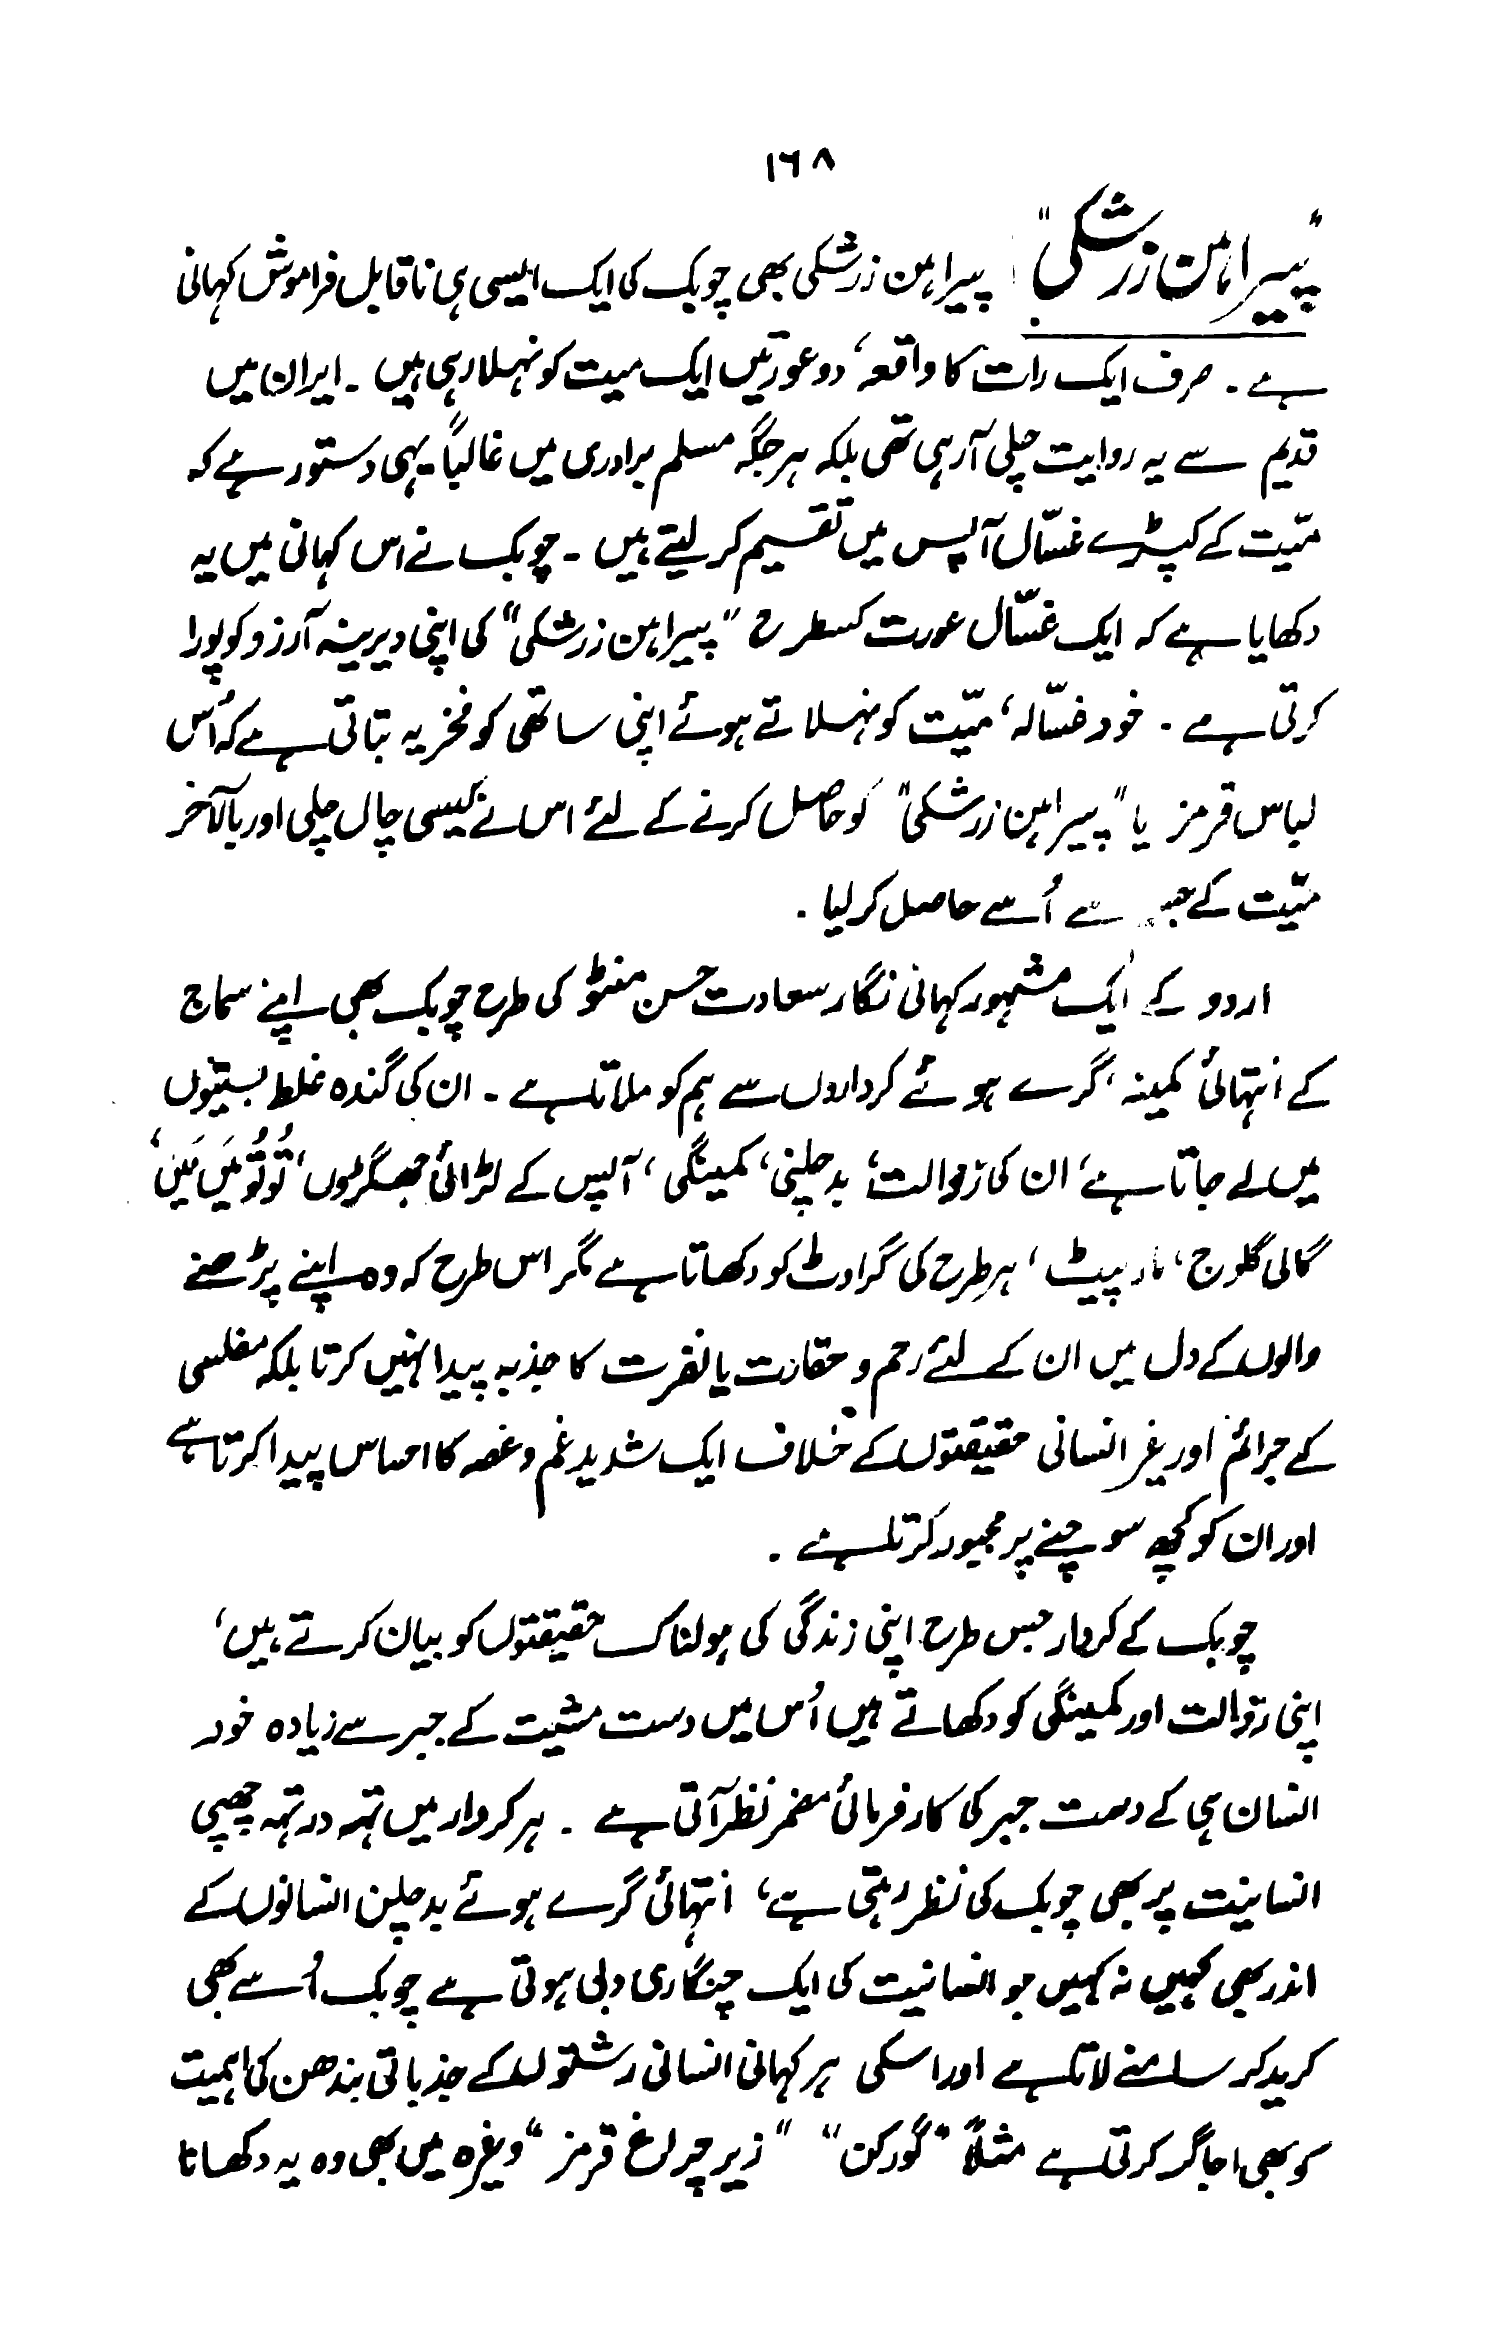 ۱۶۸
"پیراہن زرشکی" پیراہن زرشکی بھی چوبک کی ایک ایسی ہی ناقابل فراموش کہانی
ہے ۔ صرف ایک رات کا واقعہ، دو عورتیں ایک میت کو نہلا رہی ہیں ۔ ایران میں
قدیم سے یہ روایت چلی آرہی تھی بلکہ ہر جگہ مسلم برادری میں غالباً یہی دستور ہے کہ
میّت کے کپڑے غسّال آپس میں تقسیم کر لیتے ہیں ۔ چوبک نے اس کہانی میں یہ
دکھایا ہے کہ ایک غسّال عورت کسطرح "پیراہن زرشکی" کی اپنی دیرینہ آرزو کو پورا
کرتی ہے ۔ خود غسّالہ، میّت کو نہلاتے ہوئے اپنی ساتھی کو فخریہ بتاتی ہے کہ اُس
لباس قرمز یا "پیراہن زرشکی" کو حاصل کرنے کے لئے اس نے کیسی چال چلی اور بالآخر
میّت کے سے اُسے حاصل کر لیا ۔
اردو کے ایک مشہور کہانی نگار سعادت حسن منٹو کی طرح چوبک بھی اپنے سماج
کے انتہائی کمینہ، گرے ہوئے کرداروں سے ہم کو ملاتا ہے ۔ ان کی گندہ غلط بستیوں
میں لے جاتا ہے، ان کی رذالت، بد چلنی، کمینگی، آپس کے لڑائی جھگڑوں، تُو تُو مَیں مَیں،
گالی گلوج، مار پیٹ، ہر طرح کی گراوٹ کو دکھاتا ہے مگر اس طرح کہ وہ اپنے پڑھنے
والوں کے دل میں ان کے لئے رحم و حقارت یا نفرت کا جذبہ پیدا نہیں کرتا بلکہ مفلسی
کے جرائم اور غیر انسانی حقیقتوں کے خلاف ایک شدید غم و غصہ کا احساس پیدا کرتا ہے
اور ان کو کچھ سوچنے پر مجبور کرتا ہے ۔
چوبک کے کردار جس طرح اپنی زندگی کی ہولناک حقیقتوں کو بیان کرتے ہیں،
اپنی رذالت اور کمینگی کو دکھاتے ہیں اُس میں دست مشیت کے جبر سے زیادہ خود
انسان ہی کے دست جبر کی کارفرمائی مضمر نظر آتی ہے ۔ ہر کردار میں تہہ در تہہ چھپی
انسانیت پر بھی چوبک کی نظر رہتی ہے، انتہائی گرے ہوئے بد چلن انسانوں کے
اندر بھی کہیں نہ کہیں جو انسانیت کی ایک چنگاری دبی ہوتی ہے چوبک اُسے بھی
کرید کر سامنے لاتا ہے اور اسکی ہر کہانی انسانی رشتوں کے جذباتی بندھن کی اہمیت
کو بھی اجاگر کرتی ہے مثلاً "گورکن" "زیر چراغ قرمز" وغیرہ میں بھی وہ یہ دکھاتا